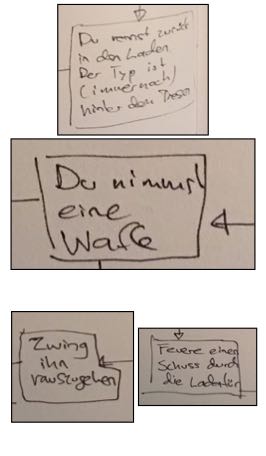 Du rennst zurück
in den Laden
Der Typ ist
(immer noch)
hinter dem Tresen
Du nimmst
eine
Waffe
Zwing
ihn
rauszugehen
Feuere einen
Schuss durch
die Ladentür